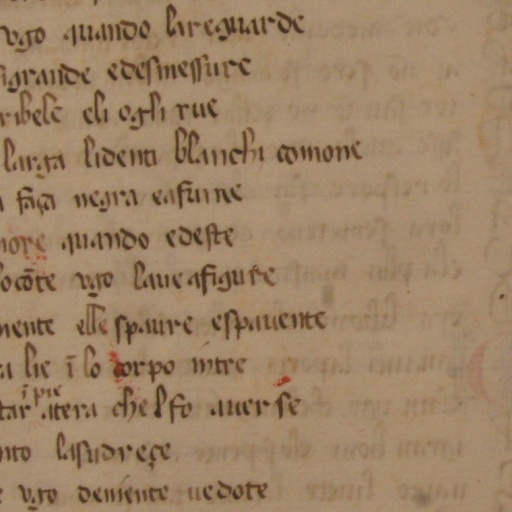 vgo quando lareguarde
grande edesmessure
ribele eli ogli rue
larga lidenti blanchi comone
faça negra eafume
more quando edeste
cōte vgo laueafigure
mente elle spaure espauente
a lie ī lo corpo intre
star ī pie atera chelfo auerse
nto lasudreçe
vgo deniente uedote